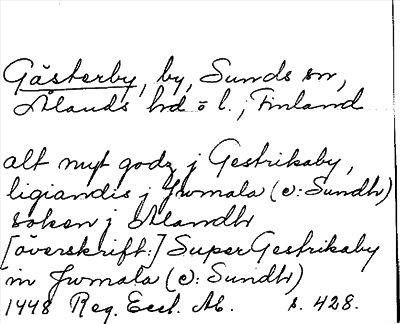 Gästerby, by, Sunds sn,
Ålands hd o l.; Finland
alt myt godz j Gestrikaby,
ligiandis j Jwmala (ɔ: Sundh)
soken j Alandh
[överskrift:] Super Gestrikaby
in Jwmala (ɔ: Sundh)
1448 Reg. Eccl. Ab. s. 428.